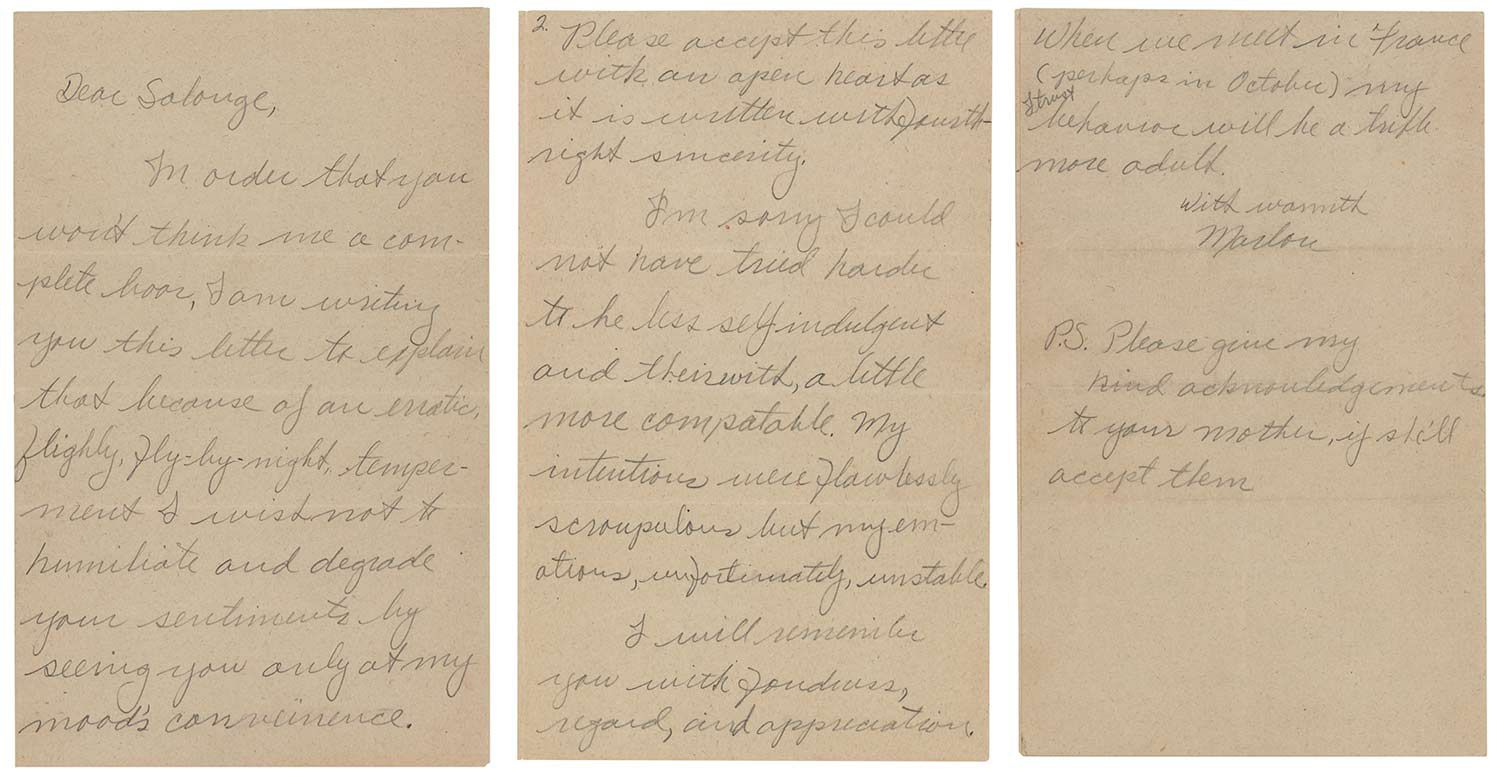 Dear Solange,
In order that you
won't think me a com-
plete boor, I am writing
you this letter to explain
that because of an erratic,
flighly, fly-by-night, temper-
ment I wish not to
humiliate and degrade
your sentiments by
seeing you only at my
mood's conveinence.
2. Please accept this little
with an open heart as
it is written with fourth-
right sincerity.
I'm sorry I could
not have tried harder
to be less self indulgent
and theirwith, a little
more compatable. My
intentions were flawlessly
scroupulous but my em-
otions, unfortunately, unstable.
I will remember
you with fondness,
regard, and appreciation.
When we meet in France
(perhaps in October) my
I trust
behavior will be a trifle
more adult.
With warmth
Marlon
P.S. Please give my
kind acknowledgements
to your mother, if she'll
accept them